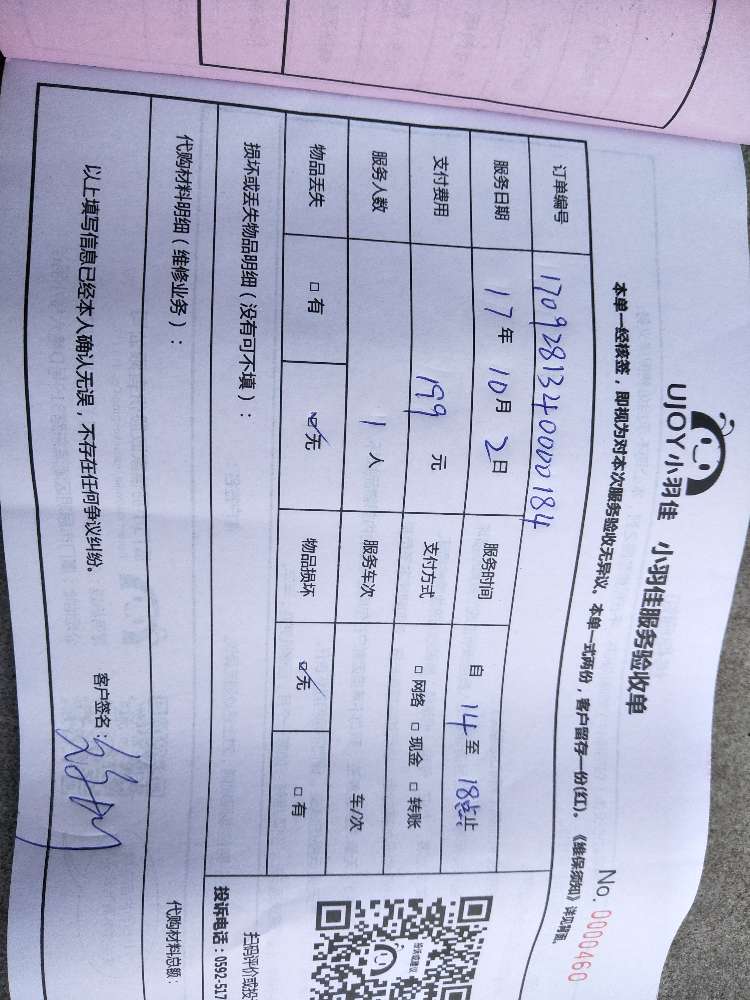 UJOY小羽佳 小羽佳服务验收单
No. 0000460
本单一经核签，即视为对本次服务验收无异议。本单一式两份，客户留存一份(红)。《维保须知》详见背面。
订单编号 170928134000184
服务日期 17年 10月 2日 服务时间 自 14 至 18点止
支付费用 199 元 支付方式 □ 网络 □ 现金 □ 转账
服务人数 1 人 服务车次 车/次
物品丢失 □ 有 ☑无 物品损坏 ☑无 □ 有
损坏或丢失物品明细（没有可不填）：
代购材料明细（维修业务）：
代购材料总额：
以上填写信息已经本人确认无误，不存在任何争议纠纷。
客户签名：
投诉或建议
扫码评价或投
投诉电话：0592-517